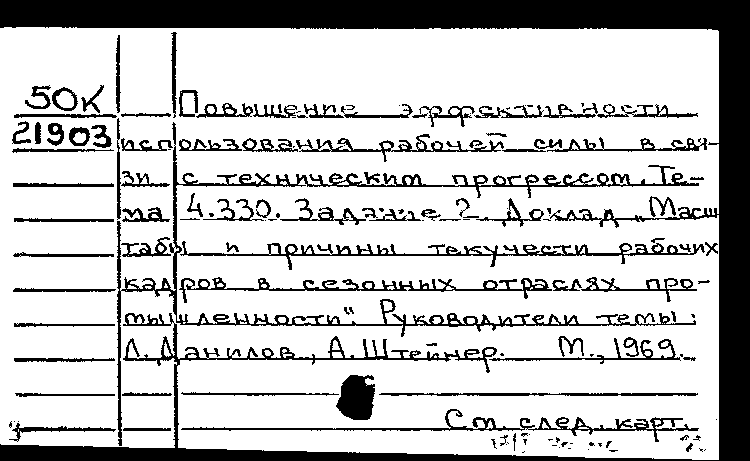 50К Повышение эффективности
21903 использования рабочей силы в свя-
зи с техническим прогрессом. Те-
ма 4.330. Задание 2. Доклад „Масш
табы и причины текучести рабочих
кадров в сезонных отраслях про-
мышленности". Руководители темы:
Л. Данилов, А. Штейнер. М., 1969.
См. след. карт.